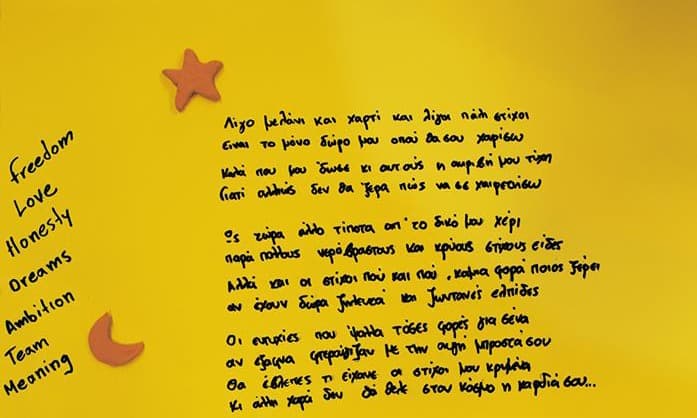 Freedom
Love
Honesty
Dreams
Ambition
Team
Meaning
Λίγο μελάνι και χαρτί και λίγοι πάλι στίχοι
είναι το μόνο δώρο μου οπού θα σου χαρίσω
Καλά που μου 'δωσε κι αυτούς η ακριβή μου τύχη
Γιατί αλλιώς δεν θα ξερα πώς να σε χαιρετήσω
Ως τώρα άλλο τίποτα απ' το δικό μου χέρι
παρά πάθους νερόβραστους και κρύους στίχους είδες
Αλλά και οι στίχοι πού και πού, καμμια φορά ποιος ξέρει
αν έχουν δώρα ζηλευτά και ζωντανές ελπίδες
Οι ευτυχίες που 'ψαλλα τόσες φορές για σένα
αν εξαφνα φτερούγιζαν με την αυγή μπροστά σου
Θα έβλεπες τι είχανε οι στίχοι μου κρυμένα
Κι άλλη χαρά δεν θά θελε στον κόσμο η καρδιά σου...